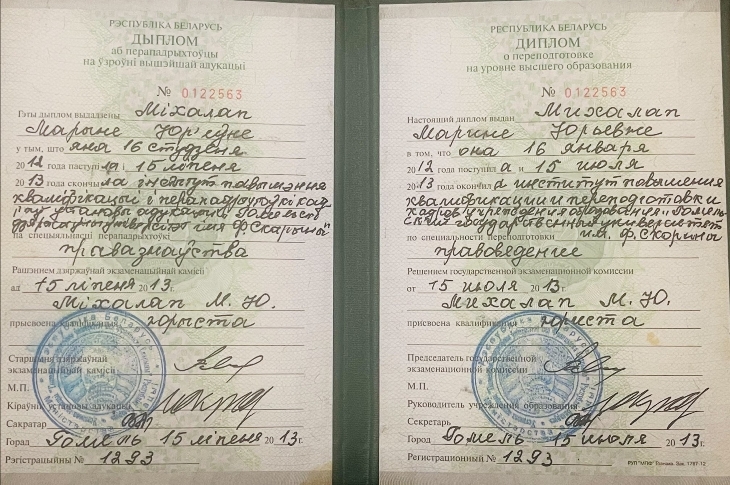 РЭСПУБЛІКА БЕЛАРУСЬ
ДЫПЛОМ
аб перападрыхтоўцы
на ўзроўні вышэйшай адукацыі
№ 0122563
Гэты дыплом выдадзены Міхалап
Марыне Юр'еўне
у тым, што яна 16 студзеня
2012 года паступіла і 15 ліпеня
2013 года скончыла інстытут павышэння
кваліфікацыі і перападрыхтоўкі кад
на спецыяльнасці перападрыхтоўкі
правазнаўства
Рашэннем дзяржаўнай экзаменацыйнай камісіі
ад 15 ліпеня 2013 г.
Міхалап М. Ю.
прысвоена кваліфікацыя юрыста
Старшыня дзяржаўнай
экзаменацыйнай камісіі
М.П.
Кіраўнік установы адукацыі
Сакратар
Горад Гомель 15 ліпеня 2013 г.
Рэгістрацыйны № 1293
РЕСПУБЛИКА БЕЛАРУСЬ
ДИПЛОМ
о переподготовке
на уровне высшего образования
№ 0122563
Настоящий диплом выдан Михалап
Марине Юрьевне
в том, что она 16 января
2012 года поступила и 15 июля
2013 года окончила институт повышения
квалификации и переподготовки
кадров учреждения образования „Гомель
ский государственный университет
по специальности переподготовки им. Ф. Скорины"
правоведение
Решением государственной экзаменационной комиссии
от 15 июля 2013 г.
Михалап М. Ю.
присвоена квалификация юриста
Председатель государственной
экзаменационной комиссии
М.П.
Руководитель учреждения образования
Секретарь
Город Гомель 15 июля 2013 г.
Регистрационный № 1293